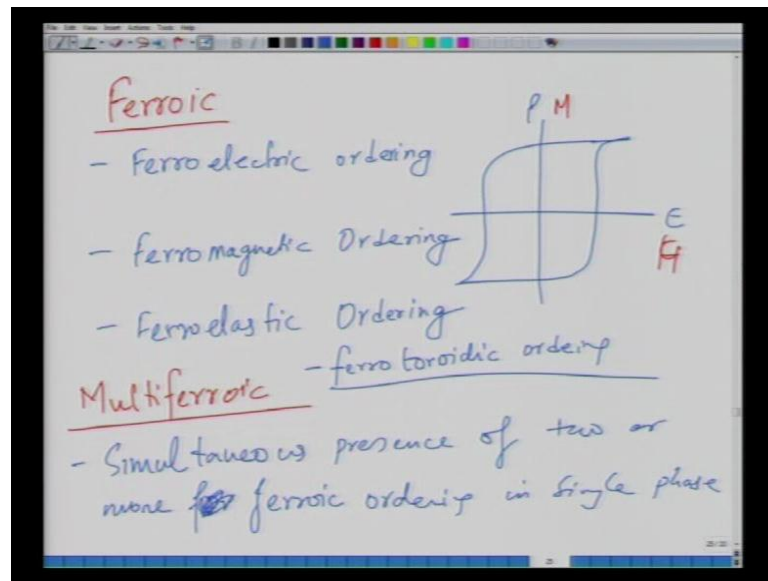 File Edit View Insert Actions Tools Help
Ferroic
P M
- Ferroelectric ordering
E
H
- Ferromagnetic Ordering
- Ferroelastic Ordering
- ferrotoroidic ordering
Multiferroic
- Simultaneous presence of two or
more ferroic ordering in single phase
25